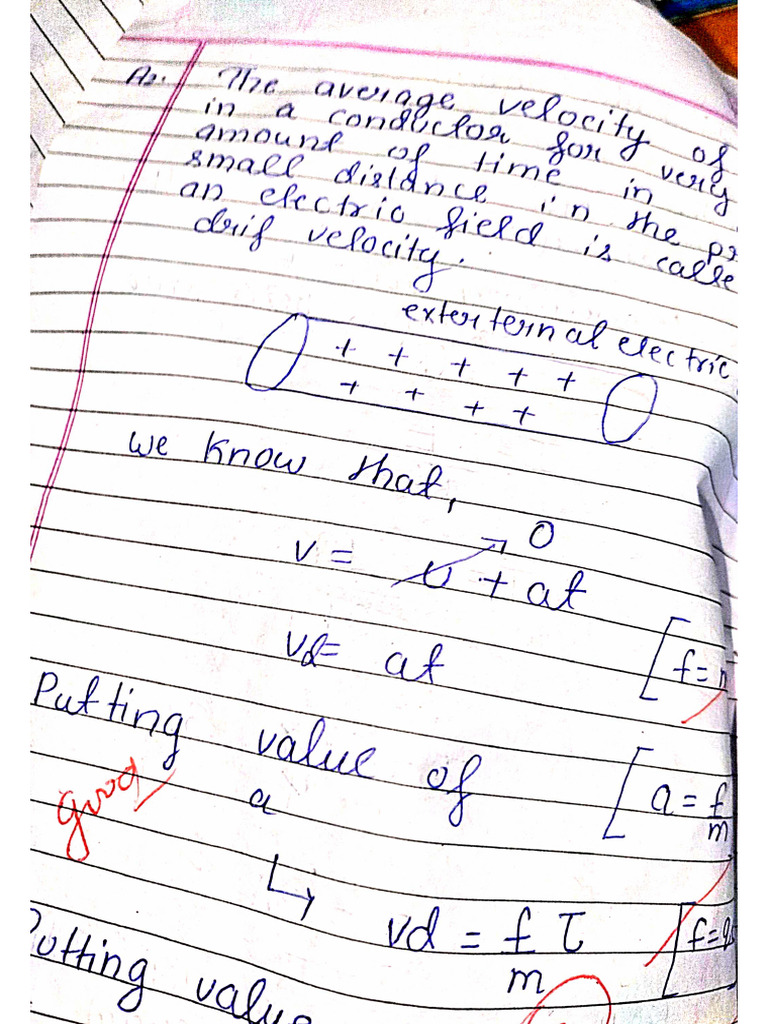 A2. The average velocity of
in a conductor for very
amount of time in
small distance in the
an electric field is calle
drif velocity.
exterternal electric
+ + + + +
+ + + +
we know that,
0
v = u + at
vd= at [f=
Putting value of [a = f/m
a
good
vd = f/m τ [f=
Putting value